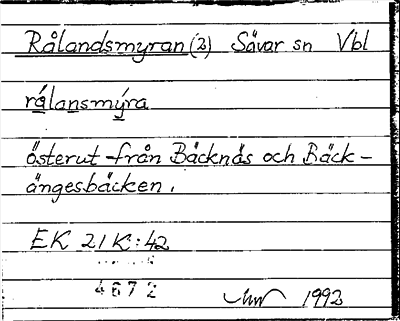 Rålandsmyran (2) Sävar sn Vbl
rålansmýra
österut från Bäcknäs och Bäck-
ängesbäcken.
EK 21 K:42
4672
1992